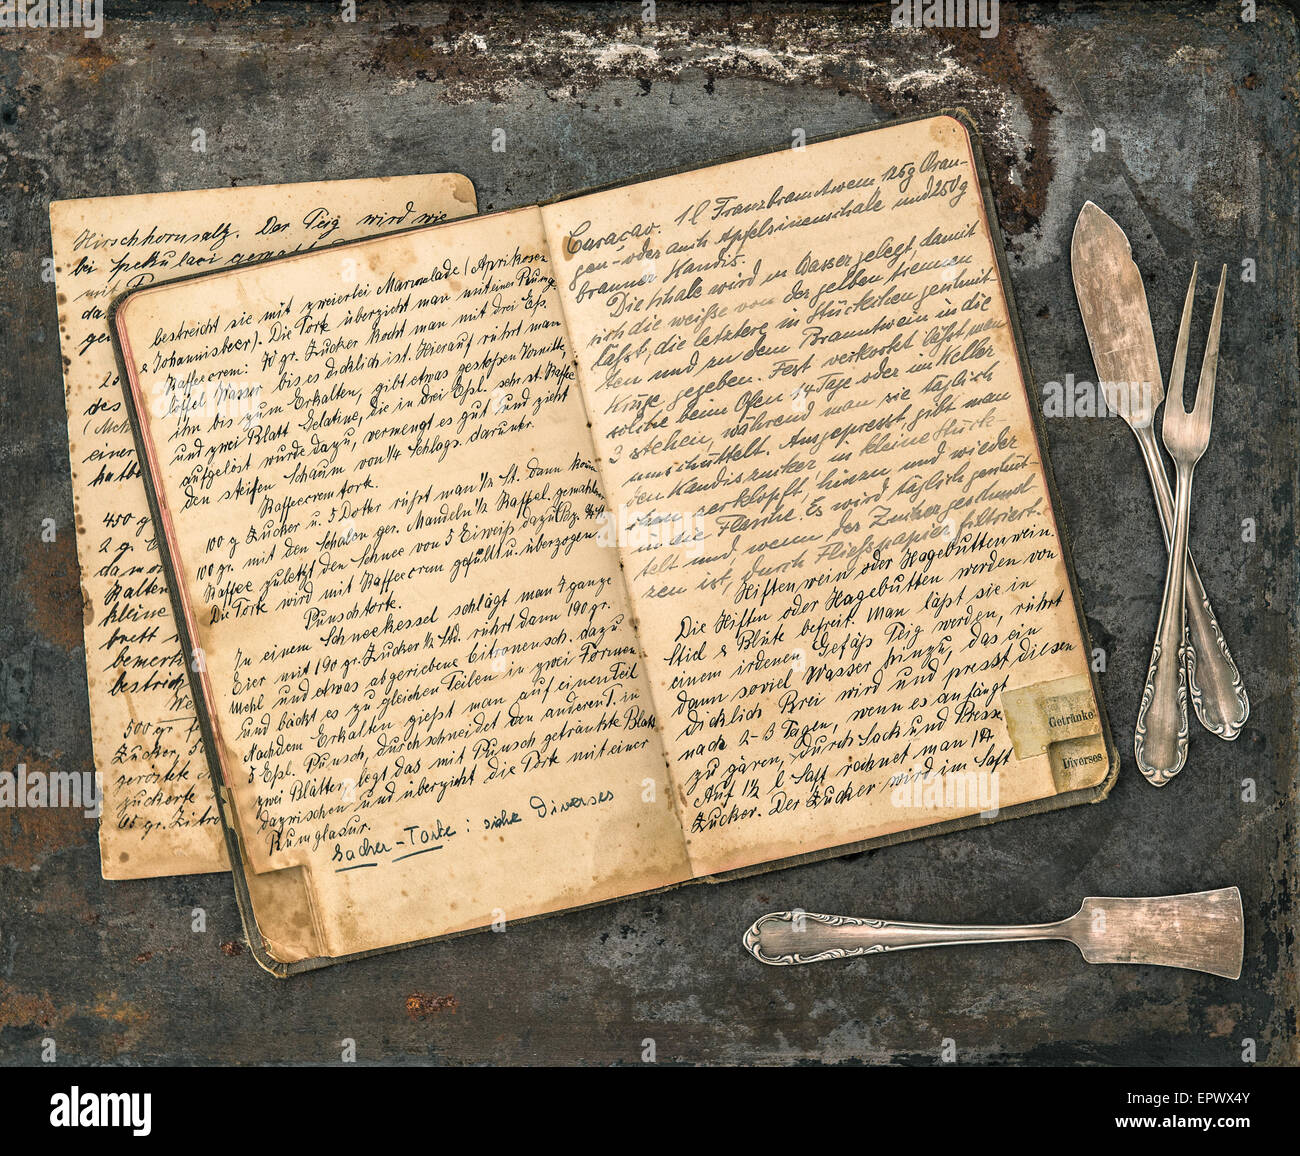 Hirschhornsalz. Der Teig wird wie
bei Spekulaci gemacht
mit
das
gen
25
des
(Meh
einer
kalt
450 g
2 g.
dam
kalten
kleine
brett
bemerk
bestrich
500 gr.
Zucker, 50
geröstete M
zuckerte
65 gr. Zitro
bestreicht sie mit zweierlei Marmelade (Aprikosen
& Johannisbeer). Die Torte überzieht man mit einer Punsch-
Kaffeecrem: 70 gr. Zucker kocht man mit drei Eßl.
löffel Wasser bis es dicklich ist. Hierauf rührt man
ihn bis zum Erkalten, gibt etwas gestoßen Vanille,
und zwei Blatt Gelatine, die in drei Eßl. sehr st. Kaffee
aufgelöst wurde dazu, vermengt es gut und zieht
den steifen Schaum von 1/4 Schlags. darunter.
Kaffeecremtork.
100 g Zucker u. 5 Dotter rührt man 1/2 St. dann kom
100 gr. mit den Schalen ger. Mandeln 1/2 Kaffel. gemahlen
Kaffee zuletzt den Schnee von 5 Eiweiß dazu
Die Tork wird mit Kaffeecrem gefüllt u. überzogen
Punschtorke.
In einem Schneekessel schlägt man 7 ganze
Eier mit 190 gr. Zucker 1/2 Std. rührt dann 190 gr.
Mehl und etwas abgeriebene Citronensch. dazu
und bäckt es zu gleichen Teilen in zwei Formen
Nachdem Erkalten gießt man auf einen Teil
5 Eßl. Punsch, durchschneidet den anderen T. in
zwei Blätter, legt das mit Punsch getränkte Blatt
dazwischen und überzieht die Tork mit einer
Rumglasur.
Sacher-Torte: siehe Diverses
Curaçao. 1 l Franzbranntwein 125g Oran-
gen- oder auch Apfelsinenschale und 250g
brauner Kandis.
Die Schale wird in Wasser gelegt, damit
sich die weiße von der gelben trennen
läßt, die letztere in Stückchen geschnit
ten und zu dem Branntwein in die
Kruge gegeben. Fest verkorkt läßt man
solche beim Ofen 14 Tage oder im Keller
3 stehen, während man sie täglich
umschüttelt. Ausgepresst, gibt man
den Kandiszucker in kleine Stück-
chen verklopft, hinzu und wieder
in die Flasche. Es wird täglich geschüt-
telt und wenn der Zucker geschmol
zen ist, durch Fließpapier filtriert.
Hiftenwein oder Hagebuttenwein.
Die Hiften oder Hagebutten werden von
Stiel & Blüte befreit. Man läßt sie in
einem irdenen Gefäß Teig werden, rührt
dann soviel Wasser hinzu, das ein
dicklich Brei wird und presst diesen
nach 2-3 Tagen, wenn es anfängt
zu gären, durch Sack und Presse.
Auf 1 1/2 l Saft rechnet man 1 ℔
Zucker. Der Zucker wird im Saft
Getränke.
Diverses
alamy
Image ID: EPWX4Y
www.alamy.com